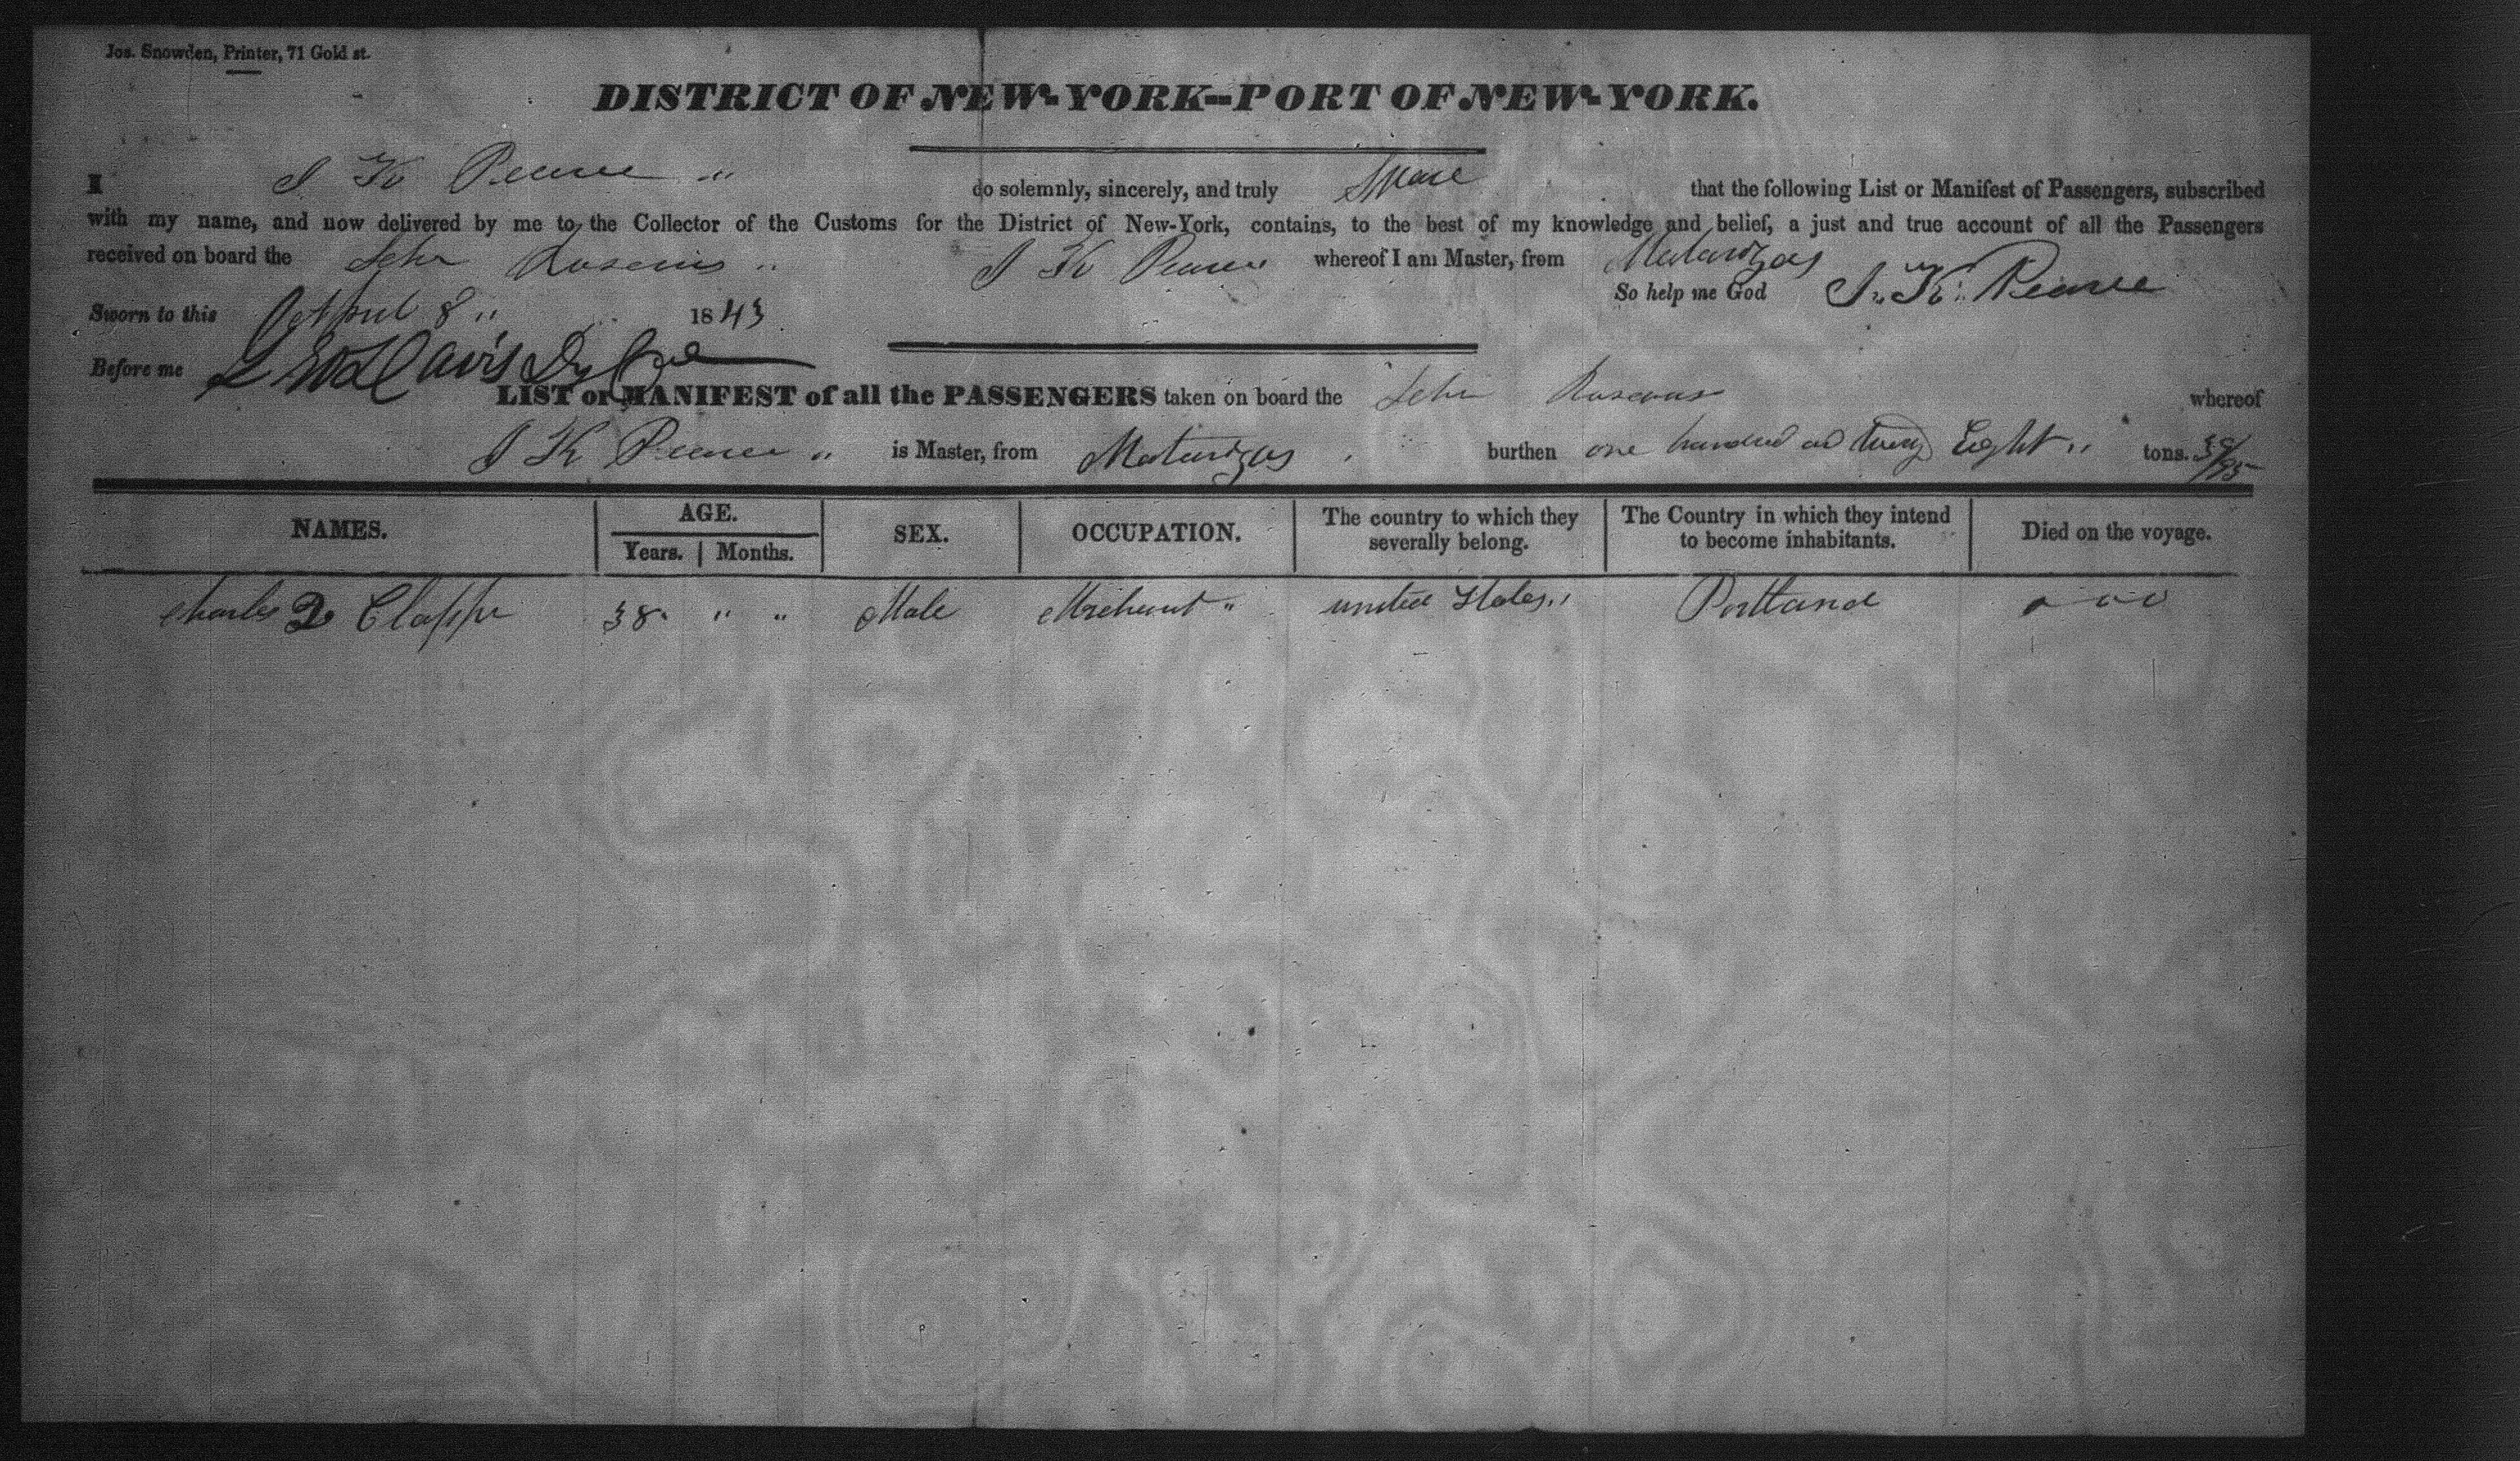 Jos. Snowden, Printer, 71 Gold st.
DISTRICT OF NEW-YORK--PORT OF NEW-YORK.
I J K Pearce " do solemnly, sincerely, and truly Swear that the following List or Manifest of Passengers, subscribed
with my name, and now delivered by me to the Collector of the Customs for the District of New-York, contains, to the best of my knowledge and belief, a just and true account of all the Passengers
received on board the Schr J K Pearce whereof I am Master, from Matanzas
So help me God J. K. Pearce
Sworn to this April 8 " 1843
Before me Davis
LIST or MANIFEST of all the PASSENGERS taken on board the Schr whereof
J K Pearce " is Master, from Matanzas burthen one hundred and twenty Eight " tons. /95
NAMES. AGE. SEX. OCCUPATION. The country to which they severally belong. The Country in which they intend to become inhabitants. Died on the voyage.
Years. Months.
Charles Q Clapp 38 " " Male Merchant " united States " Portland o o o